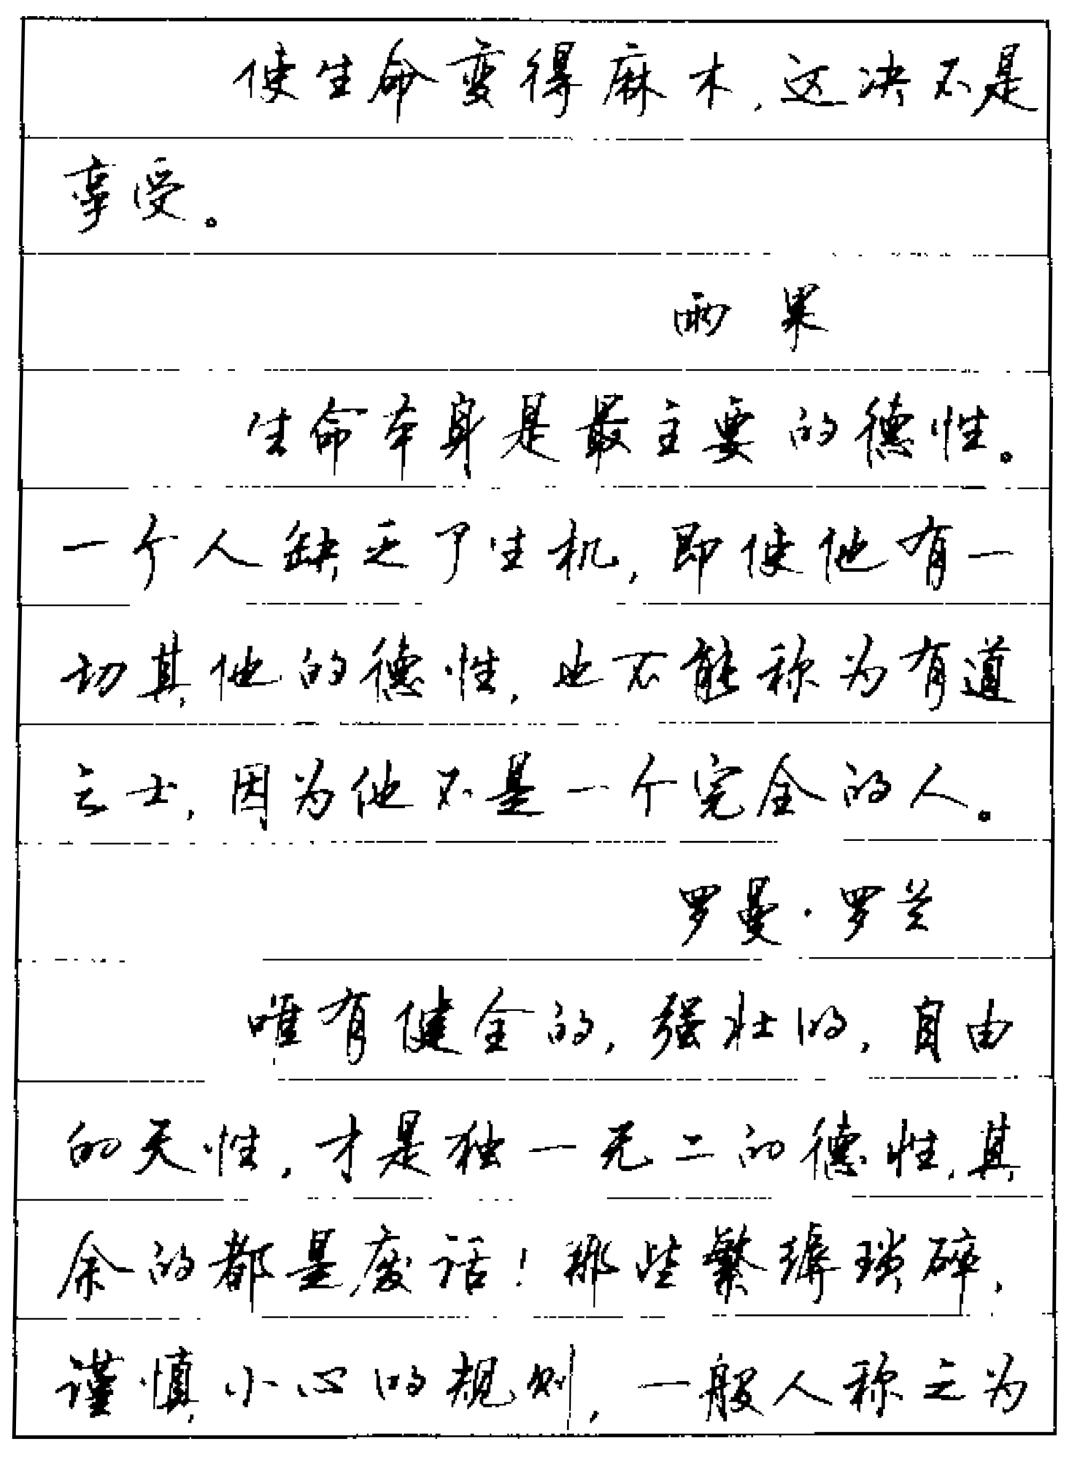 使生命变得麻木，这决不是
享受。
雨果
生命本身是最主要的德性。
一个人缺乏了生机，即使他有一
切其他的德性，也不能称为有道
之士，因为他不是一个完全的人。
罗曼·罗兰
唯有健全的，强壮的，自由
的天性，才是独一无二的德性，其
余的都是废话！那些繁缛琐碎，
谨慎小心的规则，一般人称之为